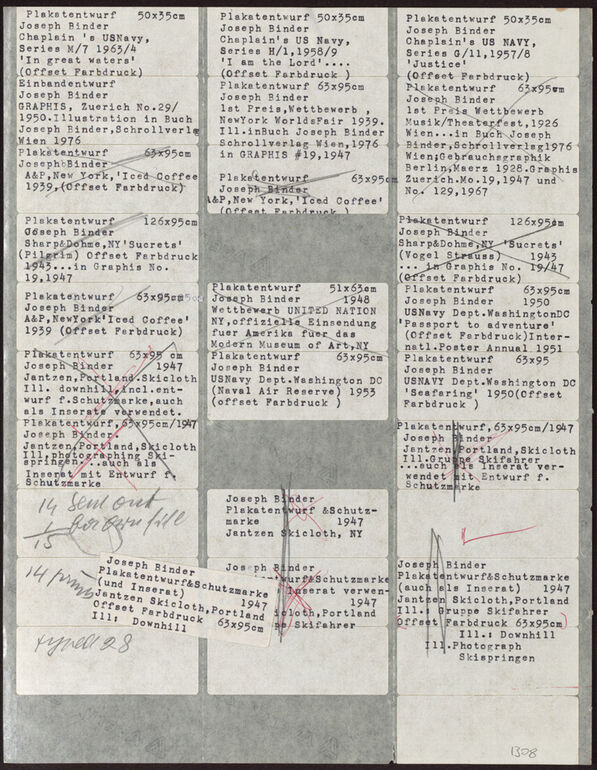 Plakatentwurf 50x35cm
Joseph Binder
Chaplain 's USNavy,
Series M/7 1963/4
'In great waters'
(Offset Farbdruck)
Einbandentwurf
Joseph Binder
GRAPHIS, Zuerich No.29/
1950.Illustration in Buch
Joseph Binder,Schrollverlg
Wien 1976
Plakatentwurf 63x95cm
Joseph Binder
A&P,New York,'Iced Coffee
1939,(Offset Farbdruck)
Plakatentwurf 126x95cm
Joseph Binder
Sharp&Dohme,NY 'Sucrets'
(Pilgrim) Offset Farbdruck
1943...in Graphis No.
19,1947
Plakatentwurf 63x95cm
Joseph Binder
A&P,NewYork'Iced Coffee'
1939 (Offset Farbdruck)
Plakatentwurf 63x95 cm
Joseph Binder 1947
Jantzen,Portland.Skicloth
Ill. downhill,incl.ent-
wurf f.Schutzmarke,auch
als Inserat verwendet.
Plakatentwurf,63x95cm/1947
Joseph Binder
Jantzen,Portland,Skicloth
Ill,photographing Ski-
springen ...auch als
Inserat mit Entwurf f.
Schutzmarke
14 Sent out
15
14
28
Joseph Binder
Plakatentwurf&Schutzmarke
(und Inserat) 1947
Jantzen Skicloth,Portland
Offset Farbdruck 63x95cm
Ill; Downhill
Plakatentwurf 50x35cm
Joseph Binder
Chaplain's US Navy,
Series H/1,1958/9
'I am the Lord'....
(Offset Farbdruck )
Plakatentwurf 63x95cm
Joseph Binder
1st Preis,Wettbewerb ,
NewYork WorldsFair 1939.
Ill.inBuch Joseph Binder
Schrollverlag Wien,1976
in GRAPHIS #19,1947
Plakatentwurf 63x95cm
Joseph Binder
A&P,New York,'Iced Coffee'
(Offset Farbdruck )
Plakatentwurf 51x63cm
Joseph Binder 1948
Wettbewerb UNITED NATION
NY,offizielle Einsendung
fuer Amerika fuer das
Modern Museum of Art,NY
Plakatentwurf 63x95cm
Joseph Binder
USNavy Dept.Washington DC
(Naval Air Reserve) 1953
(offset Farbdruck )
Joseph Binder
Plakatentwurf &Schutz-
marke 1947
Jantzen Skicloth, NY
Joseph Binder
Inserat verwen-
1947
Portland
Skifahrer
Plakatentwurf 50x35cm
Joseph Binder
Chaplain's US NAVY,
Series G/11,1957/8
'Justice'
(Offset Farbdruck)
Plakatentwurf 63x95cm
Joseph Binder
1st Preis Wettbewerb
Musik/Theaterfest,1926
Wien...in Buch Joseph
Binder,Schrollverlag1976
Wien;Gebrauchsgraphik
Berlin,Maerz 1928.Graphis
Zuerich.Mo.19,1947 und
No. 129,1967
Plakatentwurf 63x95cm
Joseph Binder
Sharp&Dohme,NY 'Sucrets'
(Vogel Strauss) 1943
... in Graphis No. 19/47
(Offset Farbdruck)
Plakatentwurf 63x95cm
Joseph Binder 1950
USNavy Dept.WashingtonDC
'Passport to adventure'
(Offset Farbdruck)Inter-
natl.Poster Annual 1951
Plakatentwurf 63x95
Joseph Binder
USNAVY Dept.Washington DC
'Seafaring' 1950(Offset
Farbdruck )
Plakatentwurf,63x95cm/1947
Joseph Binder
Jantzen Portland,Skicloth
Ill.Gruppe Skifahrer
...auch als Inserat ver-
wendet mit Entwurf f.
Schutzmarke
Joseph Binder
Plakatentwurf&Schutzmarke
(auch als Inserat) 1947
Jantzen Skicloth,Portland
Ill.: Gruppe Skifahrer
Offset Farbdruck 63x95cm
Ill.: Downhill
Ill.Photograph
Skispringen
1308